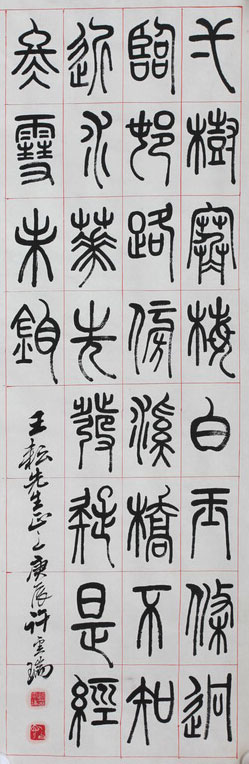 弌樹寒梅白玉條迥
臨邨路傍溪橋不知
近水華先發疑是經
冬雪未銷
王耘先生正之庚辰許雲瑞